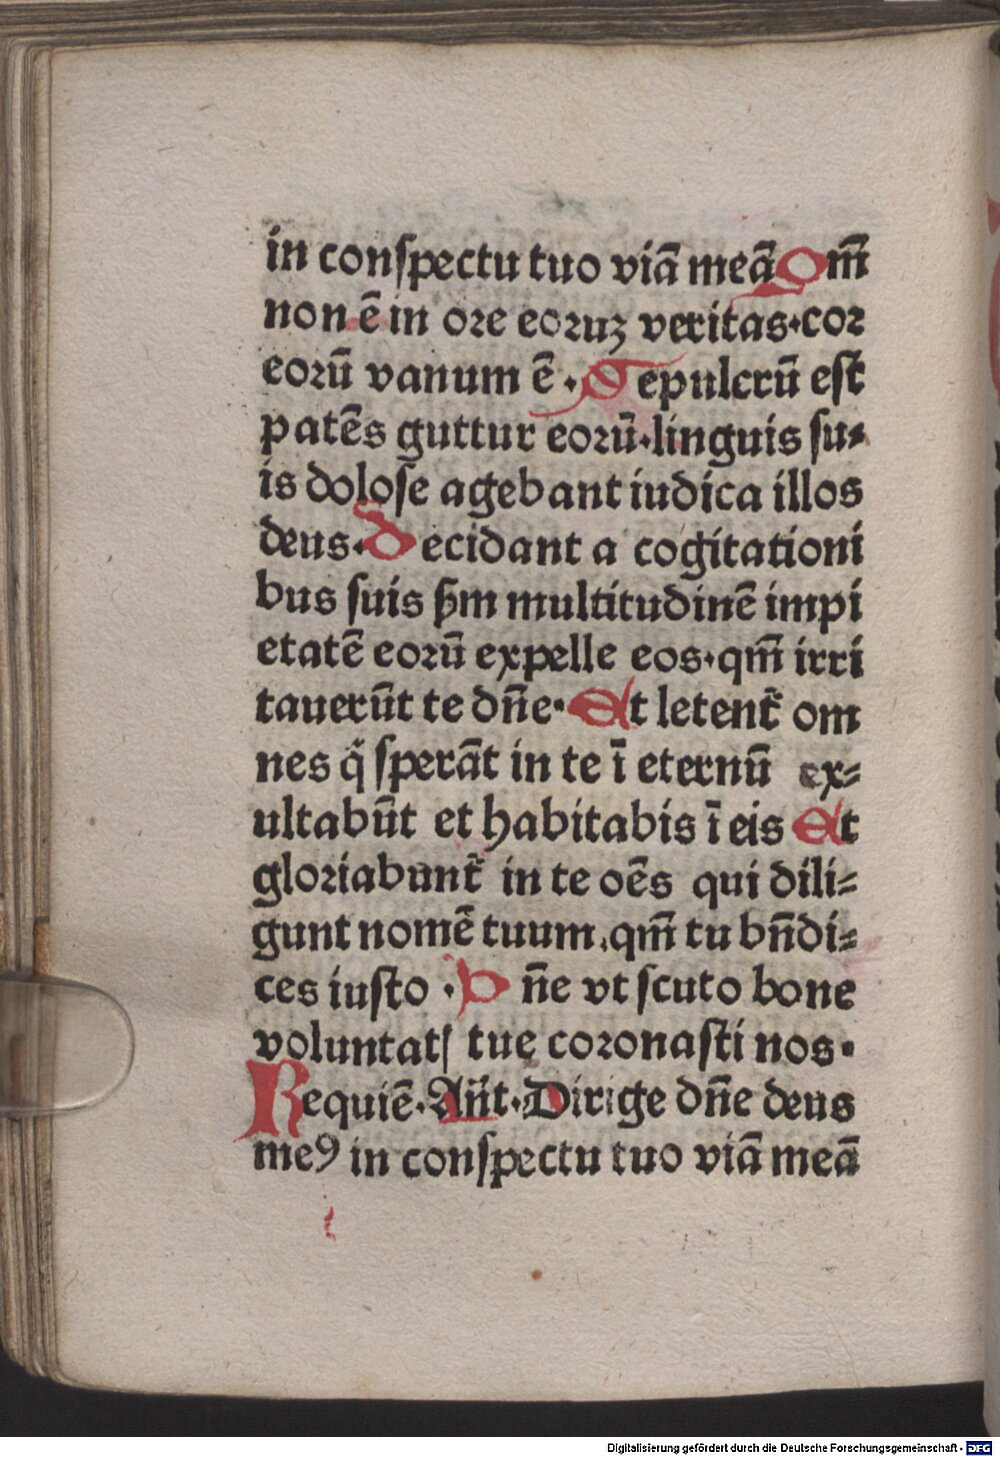 in conſpectu tuo viā meā Qm̄
non ē in ore eoruꝫ veritas·cor
eorū vanum ē · Sepulcrū eſt
patēs guttur eorū·linguis ſu⸗
is doloſe agebant iudica illos
deus·Decidant a cogitationi
bus ſuis ẜm multitudinē impi
etatē eorū expelle eos·qm̄ irri
tauerūt te dn̄e·Et letent᷑ om
nes q̇ ſperāt in te ī eternū ex⸗
ultabūt et habitabis ī eis Et
gloriabunt᷑ in te oēs qui dili⸗
gunt nomē tuum,qm̄ tu bn̄di⸗
ces iuſto · Dn̄e vt ſcuto bone
voluntatꝭ tue coronaſti nos·
Requiē·An̄t·Dirige dn̄e deus
meꝰ in conſpectu tuo viā meā
Digitalisierung gefördert durch die Deutsche Forschungsgemeinschaft - DFG